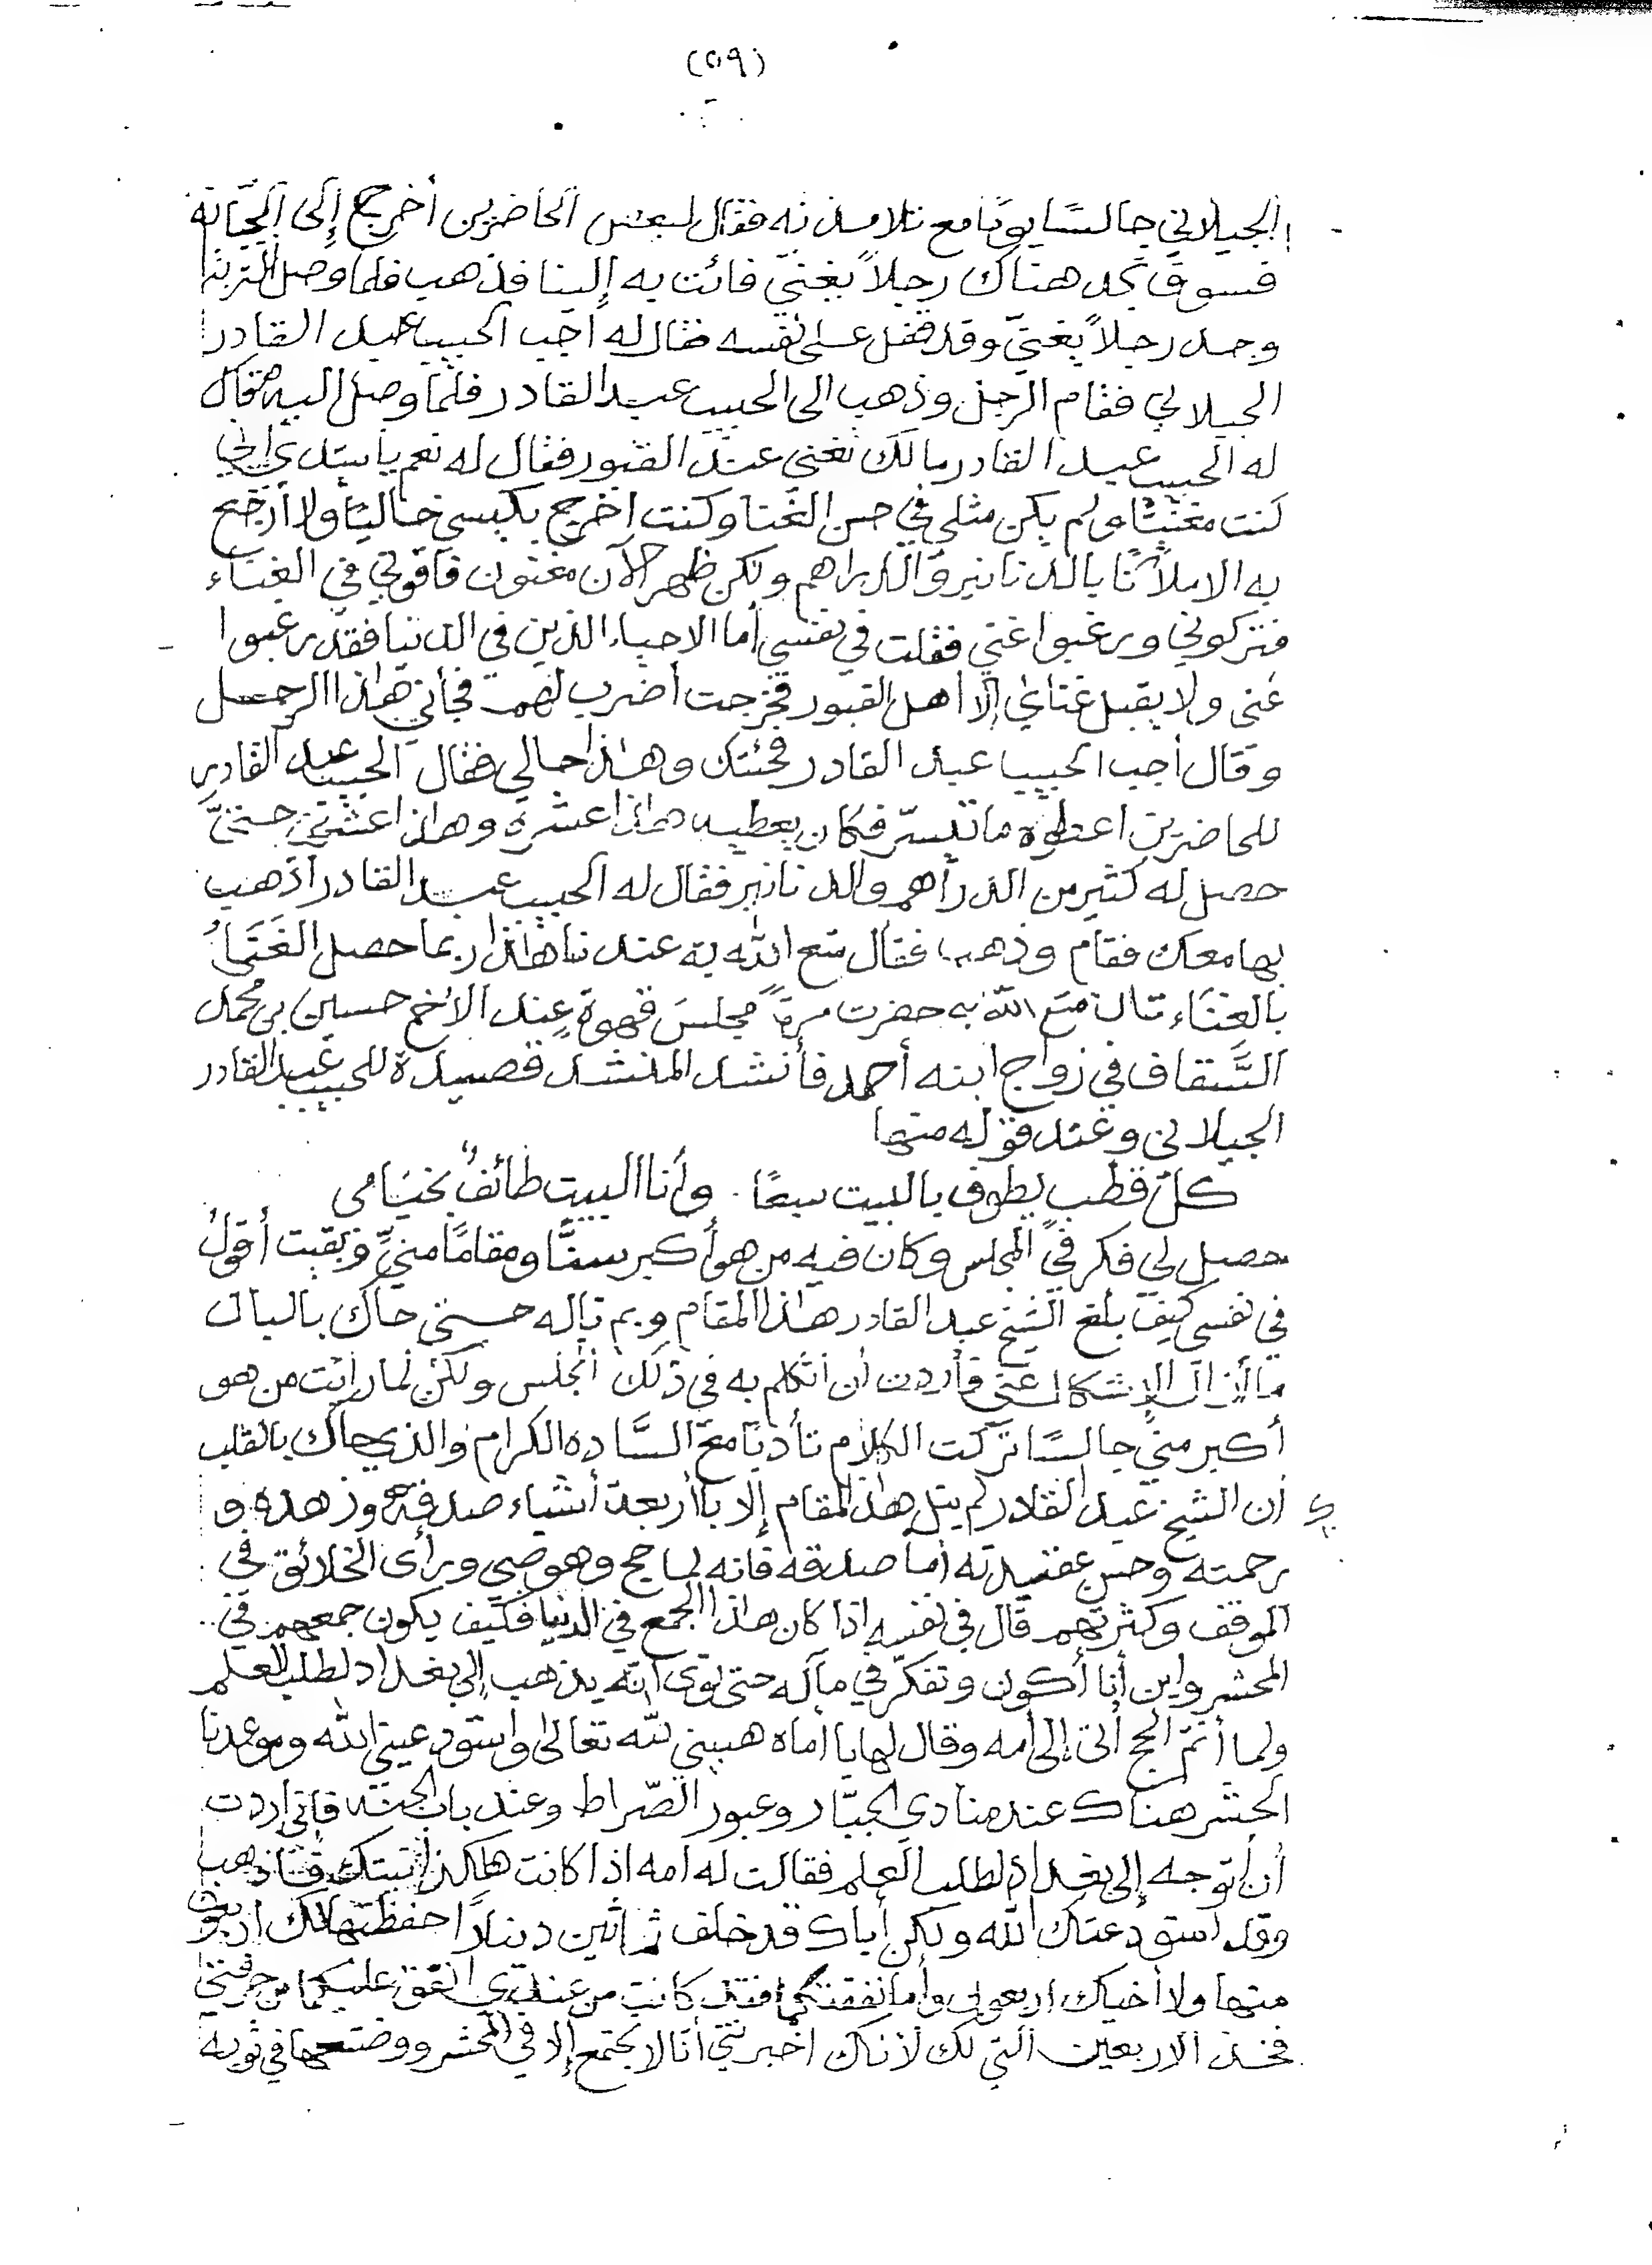 (٥٩)
الجيلاني جالسًا يومًا مع تلامذته فقال لبعض الحاضرين أخرج إلى الجبّانة
فسوف تجد هناك رجلاً يغنيّ فائت به إلينا فذهب فلما وصل التربة
وجد رجلاً يغنيّ وقد قفل على نفسه فقال له أجب الحبيب عبد القادر
الجيلاني فقام الرجل وذهب الى الحبيب عبد القادر فلما وصل اليه قال
له الحبيب عبد القادر مالك تغني عند القبور فقال له نعم يا سيدي إني
كنت مغنيًّا ولم يكن مثلي في حسن الغنا وكنت اخرج بكيسي خاليًا ولا أرجع
به الا ملآنًا بالدنانير والدراهم ولكن ظهر الآن مغنون فاقوني في الغناء
فتركوني ورغبوا عني فقلت في نفسي أما الاحياء الذين في الدنيا فقد رغبوا
عني ولا يقبل غناي إلا أهل القبور فخرجت أضرب لهم فجأني هٰذا الرجل
وقال أجب الحبيب عبد القادر فجئتك وهٰذا حالي فقال الحبيب عبد القادر
للحاضرين اعطوه ما تيسّر فكان يعطيه هٰذا عشرة وهٰذا عشرين حتىّ
حصل له كثير من الدراهم والدنانير فقال له الحبيب عبد القادر أذهب
بها معك فقام وذهب فقال متع الله به عندنا هٰذا ربما حصل الغَنَاءُ
بالغناء قال متع الله به حضرت مرةً مجلسَ قهوة عِند الأخ حسين بن محمد
السَّقاف في زواج ابنه أحمد فأنشد المنشد قصيدة للحبيب عبد القادر
الجيلاني وعند قوله منها
كلّ قطب يطوف بالبيت سبعًا . وأنا البيت طائفٌ بخيَامي
حصل لي فكر في المجلس وكان فيه من هو أكبر سنًّا ومقامًا منيِّ وبقيت أقولُ
في نفسي كيف بلغ الشيخ عبد القادر هٰذا المقام وبم ناله حتى حاك بالبال
ما أزال الإشكال عنيّ فأردت أن اتكلم به في ذلك المجلس ولكن لما رأيت من هو
أكبر منيّ جالسًا تركت الكلام تأدبًا مع السَّاده الكرام والذي حاك بالقلب
أن الشيخ عبد القادر لم ينل هٰذا المقام إلا بأربعة أشياء صدقه وزهده و
رحمته وحسن عقيدته أما صدقه فانه لما حج وهو صبي ورأى الخلائق في
الموقف وكثرتهم قال في نفسه اذا كان هٰذا الجمع في الدنيا فكيف يكون جمعهم في
المحشر واين أنا أكون وتفكّر في مآله حتى نوى أنه يذهب إلى بغداد لطلب العلم
ولما أتمّ الحج أتى إلى أمه وقال لها يا أماه هبيني لله تعالى واستودعيني الله وموعدنا
الحشر هناك عند منادي الجبّار وعبور الصّراط وعند باب الجنّه فاني اردت
أن أتوجه إلى بغداد لطلب العلم فقالت له امه اذا كانت هٰكذا نيتك فاذهب
وقد استودعتك الله ولكن أباك قد خلف ثمانين دينارًا حفظتها لك اربعون
منها ولأخيك اربعون وأما نفقتكما فقد كانت من عندي انفق عليكما من حرفتي
فخذ الاربعين التي لك لأناك اخبرتني أنا لا نجتمع إلا في المحشر ووضعتها في ثوبه